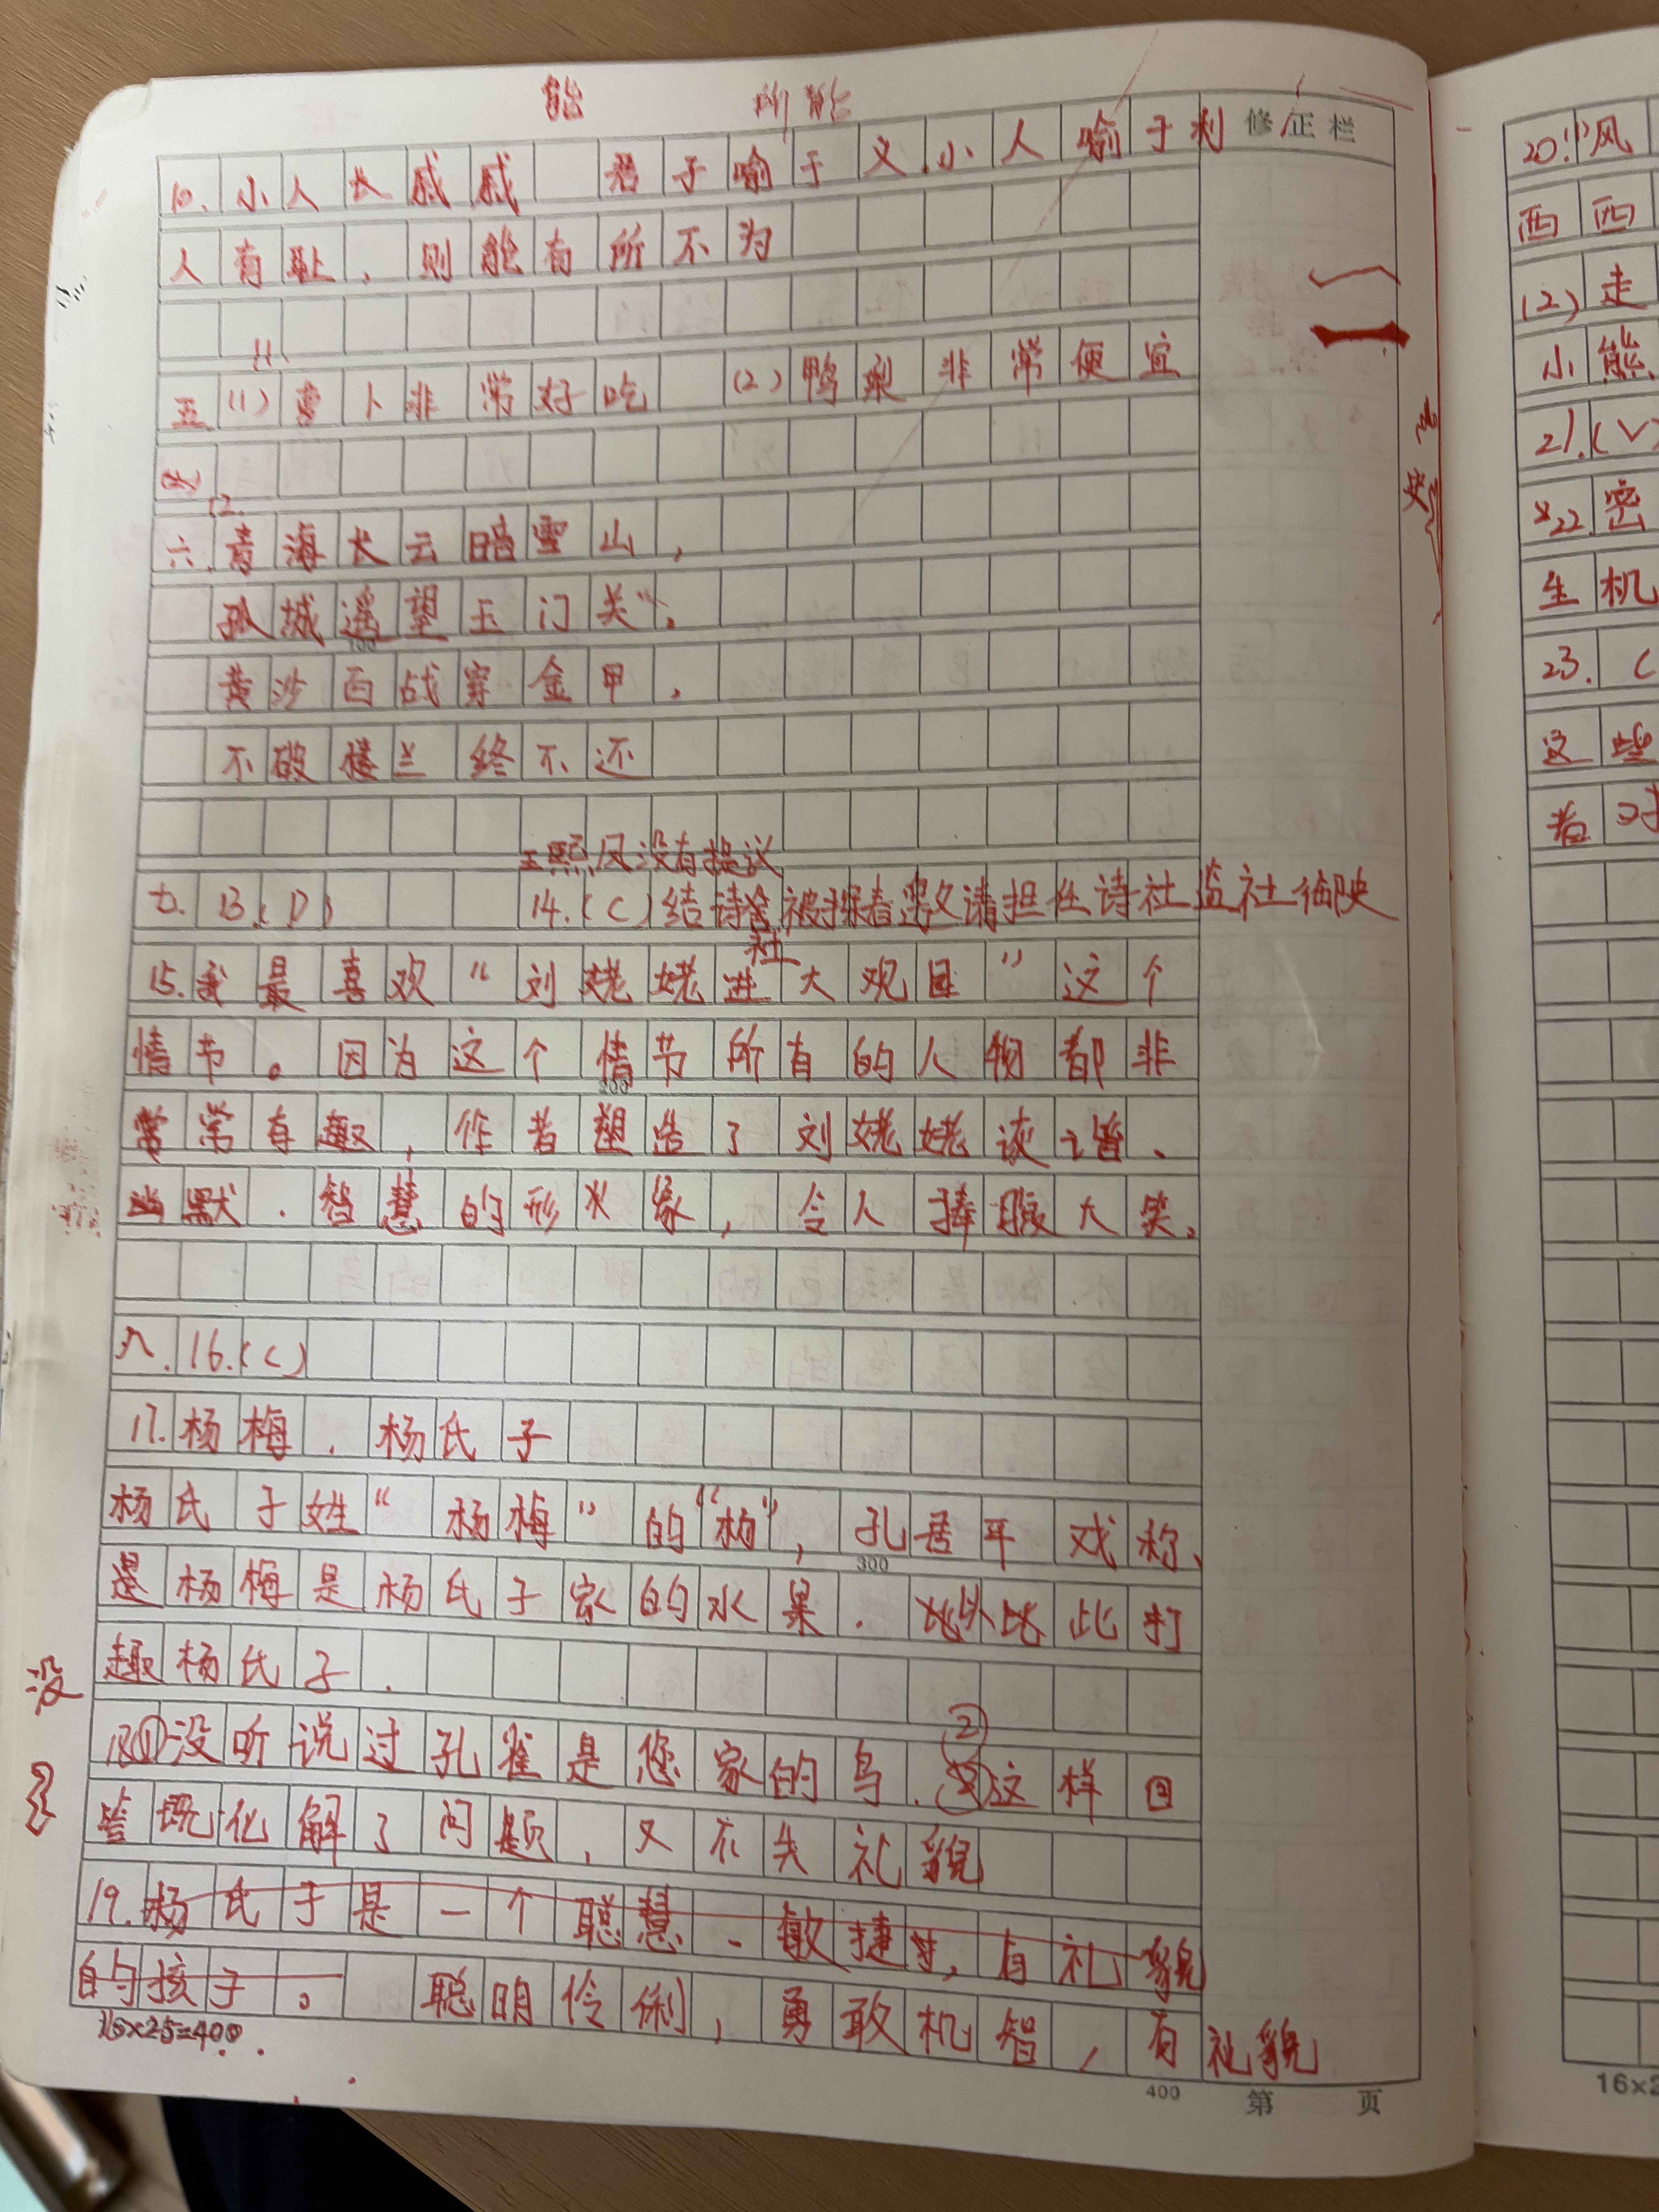 能 所能
10. 小人长戚戚 君子喻于义,小人喻于利 修正栏
人有耻,则能有所不为
11.
五.(1)萝卜非常好吃 (2)鸭梨非常便宜
12.
六.青海长云暗雪山,
孤城遥望玉门关。
100
黄沙百战穿金甲,
不破楼兰终不还
王熙凤没有提议
七.13.(D) 14.(C)结诗 被探春邀请担任诗社监社御史
社
15.我最喜欢“刘姥姥进大观园”这个
情节。因为这个情节所有的人物都非
200
常常有趣,作者塑造了刘姥姥诙谐、
幽默.智慧的形象,令人捧腹大笑。
八.16.(C)
17.杨梅.杨氏子
杨氏子姓“杨梅”的“杨”,孔君平戏称、
300
是杨梅是杨氏子家的水果.此打
趣杨氏子.
没
18.①没听说过孔雀是您家的鸟.②这样回
答既化解了问题,又不失礼貌
19.杨氏子是一个聪慧、敏捷,有礼貌
的孩子。 聪明伶俐,勇敢机智,有礼貌
16×25=400
400 第 页
20.(1)风
西西
(2)走
小熊
21.(√
22.密
生机
23.(
这些
着对
16×2